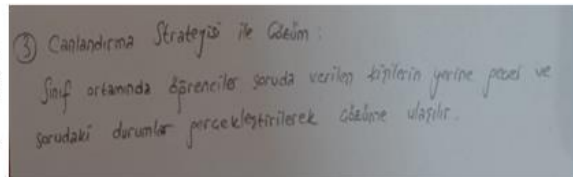 ③ Canlandırma Stratejisi ile Çözüm :
Sınıf ortamında öğrenciler soruda verilen kişilerin yerine geçer ve
sorudaki durumlar gerçekleştirilerek çözüme ulaşılır.